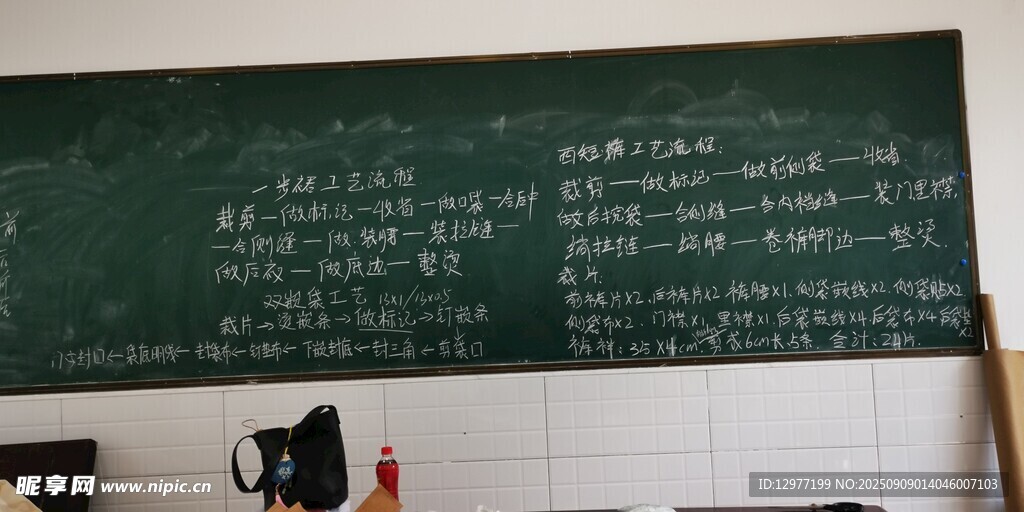 一步裙工艺流程
裁剪—做标记—收省—做口袋—合后中
—合侧缝—做.装腰—装拉链—
做后衩—做底边—整烫
双嵌袋工艺 13×1/13×0.5
裁片→烫嵌条→做标记→钉嵌条
封口←袋底明线←封袋布←钉垫布←下嵌封底←封三角←剪袋口
西短裤工艺流程:
裁剪—做标记—做前侧袋—收省.
做后挖袋—合侧缝—合内裆缝—装门里襟
绱拉链—绱腰—卷裤脚边—整烫.
裁片.
前裤片×2.后裤片×2 裤腰×1.侧袋嵌线×2.侧袋贴×2
侧袋布×2.门襟×1.里襟×1.后袋嵌线×4.后袋布×4后袋
裤袢:35×4cm 剪成6cm长5条.合计:24片.
前
后
前
昵享网 www.nipic.cn
ID:12977199 NO:20250909014046007103